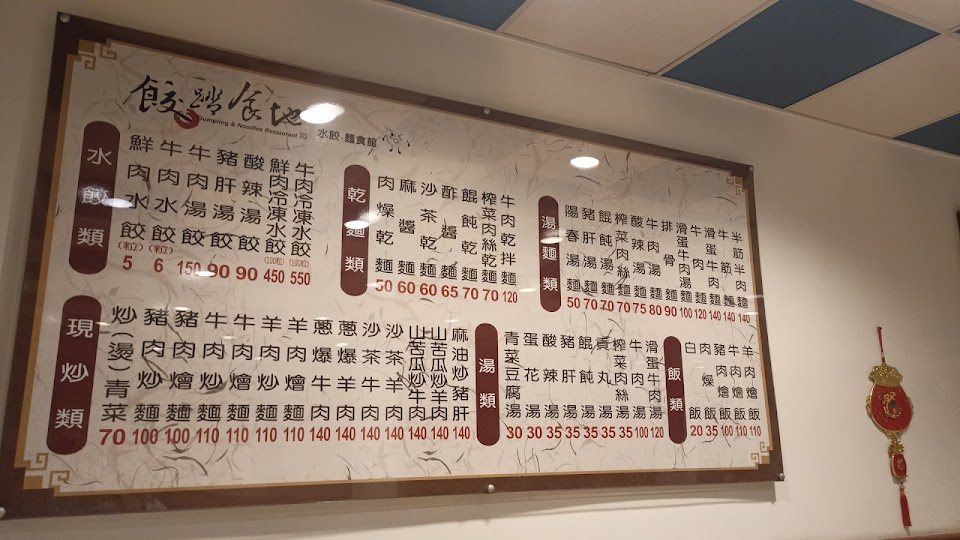 餃踏食地
Dumpling & Noodles Restaurant
水餃·麵食館
水餃類
鮮肉水餃(粒) 5
牛肉水餃(粒) 6
牛肉湯餃 150
豬肝湯餃 90
酸辣湯餃 90
鮮肉冷凍水餃(100粒) 450
牛肉冷凍水餃(100粒) 550
乾麵類
肉燥乾麵 50
麻醬麵 60
沙茶乾麵 60
酢醬麵 65
餛飩乾麵 70
榨菜肉絲乾麵 70
牛肉乾拌麵 120
湯麵類
陽春湯麵 50
豬肝湯麵 70
餛飩湯麵 70
榨菜肉絲湯麵 70
酸辣湯麵 75
牛肉湯麵 80
排骨麵 90
滑蛋牛肉湯麵 100
牛肉麵 120
滑蛋牛肉麵 140
牛筋麵 140
半筋半肉麵 140
現炒類
炒(燙)青菜 70
豬肉炒麵 100
豬肉燴麵 100
牛肉炒麵 110
牛肉燴麵 110
羊肉炒麵 110
羊肉燴麵 110
蔥爆牛肉 140
蔥爆羊肉 140
沙茶牛肉 140
沙茶羊肉 140
山苦瓜炒牛肉 140
山苦瓜炒羊肉 140
麻油炒豬肝 140
湯類
青菜豆腐湯 30
蛋花湯 30
酸辣湯 35
豬肝湯 35
餛飩湯 35
貢丸湯 35
榨菜肉絲湯 35
牛肉湯 100
滑蛋牛肉湯 120
飯類
白飯 20
肉燥飯 35
豬肉燴飯 100
牛肉燴飯 110
羊肉燴飯 110